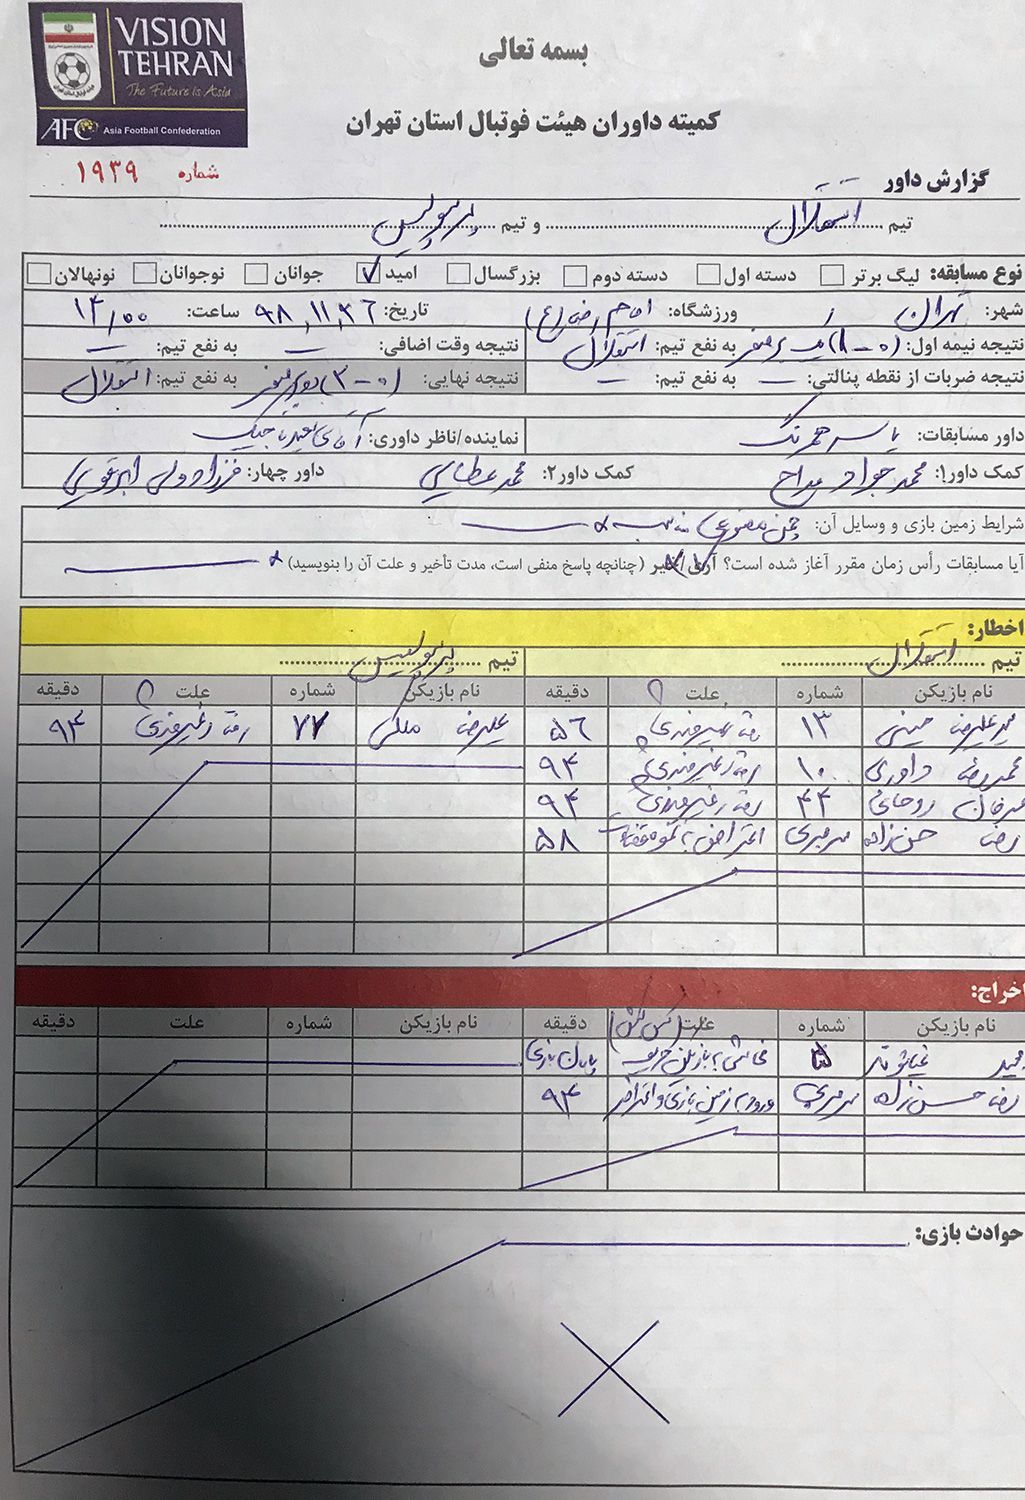 VISION
TEHRAN
The Future is Asia
AFC Asia Football Confederation
بسمه تعالی
کمیته داوران هیئت فوتبال استان تهران
شماره ۱۹۳۹
گزارش داور
تیم استقلال و تیم پرسپولیس
نوع مسابقه: لیگ برتر دسته اول دسته دوم بزرگسال امید جوانان نوجوانان نونهالان
شهر: تهران ورزشگاه: امام رضا (ع) تاریخ: ۹۸,۱۱,۲۶ ساعت: ۱۴/۰۰
نتیجه نیمه اول: (۰-۱) یک بر صفر به نفع تیم: استقلال نتیجه وقت اضافی: – به نفع تیم: –
نتیجه ضربات از نقطه پنالتی: – به نفع تیم: – نتیجه نهایی: به نفع تیم: استقلال
داور مسابقات: یاسر همرنگ نماینده/ناظر داوری: آقای
کمک داور۱: محمدجواد مداح کمک داور۲: محمد عطایی داور چهار: فرزاد
شرایط زمین بازی و وسایل آن: چمن مصنوعی مناسب
آیا مسابقات رأس زمان مقرر آغاز شده است؟ آری/خیر (چنانچه پاسخ منفی است، مدت تأخیر و علت آن را بنویسید)
اخطار:
تیم استقلال تیم پرسپولیس
نام بازیکن شماره علت دقیقه نام بازیکن شماره علت دقیقه
علیرضا حسینی ۱۳ رفتار غیرورزشی ۵۶ علیرضا ملکی ۷۷ رفتار غیرورزشی ۹۴
محمدرضا داوری ۱۰ رفتار غیرورزشی ۹۴
روحانی ۴۴ رفتار غیرورزشی ۹۴
رضا حسن‌زاده سرمربی اعتراض به نحوه قضاوت ۵۸
اخراج:
نام بازیکن شماره علت دقیقه نام بازیکن شماره علت دقیقه
۵ فحاشی به بازیکن حریف پایان بازی
رضا حسن‌زاده سرمربی ورود به زمین بازی و اعتراض ۹۴
حوادث بازی: